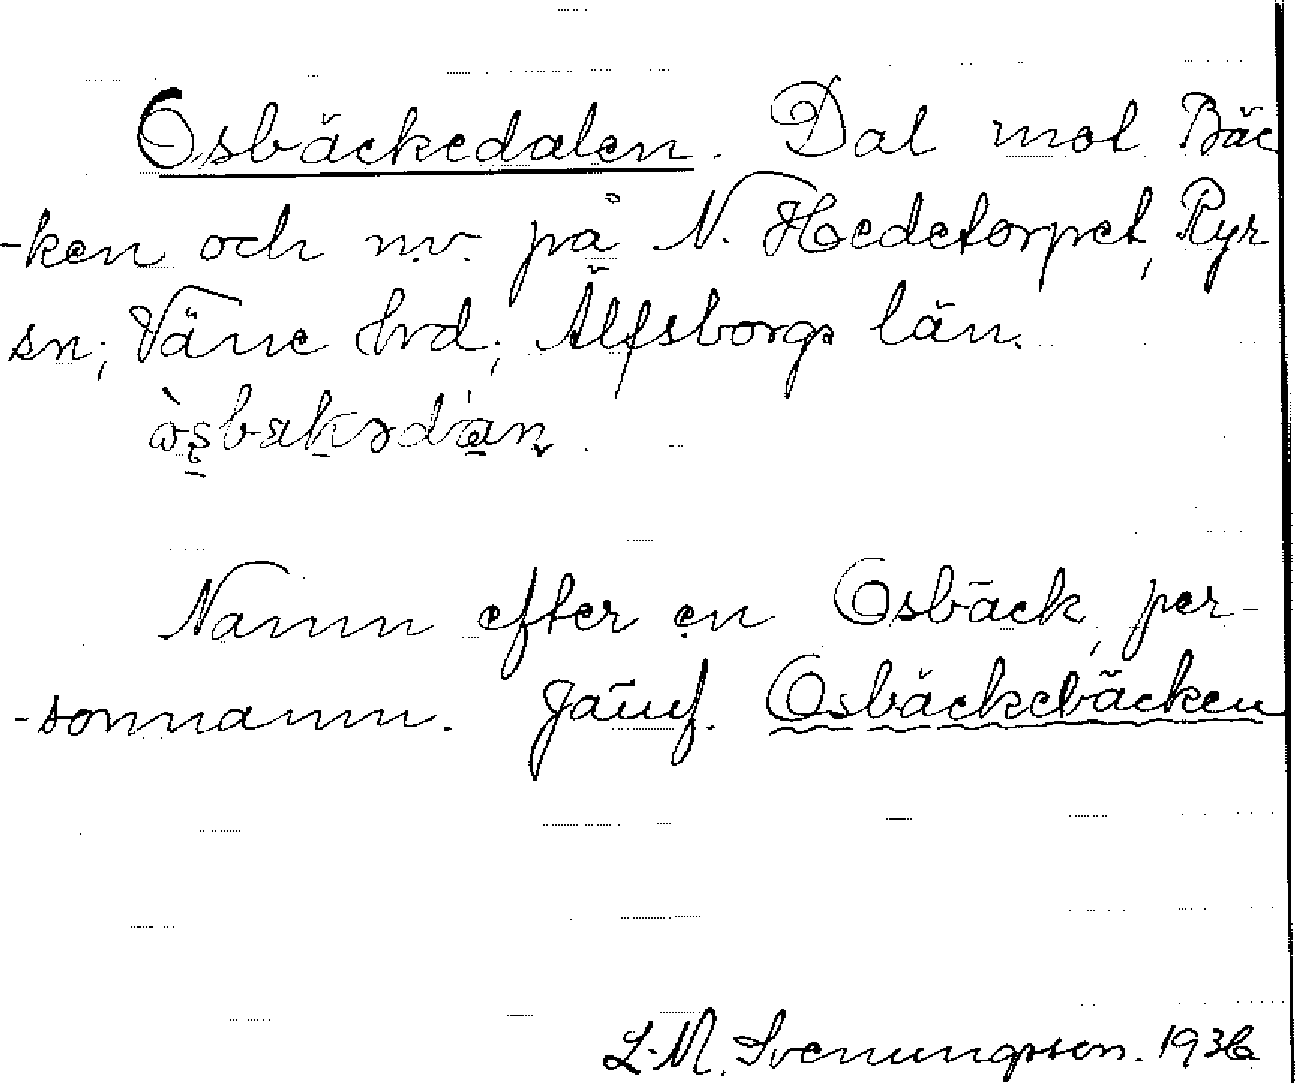 Osbäckedalen. Dal mot Bäc
-ken och n.v. på N. Hedetorpet, Ryr
sn; Väne hrd; Älfsborgs län.
Namn efter en Osbäck, per-
-sonnamn. Jämf. Osbäckebäcken
L.M. Svenungsson. 1936